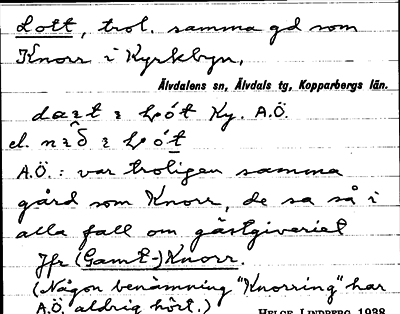 Lott, trol. samma gd som
Knorr i Kyrkbyn,
Älvdalens sn, Älvdals tg, Kopparbergs län.
Ky. A.Ö.
el.
A.Ö.: var troligen samma
gård som Knorr, de sa så i
alla fall om gästgiveriet
Jfr (Gamt-)Knorr.
(Någon benämning "Knorring" har
A.Ö. aldrig hört.) HELGE LINDBERG 1938